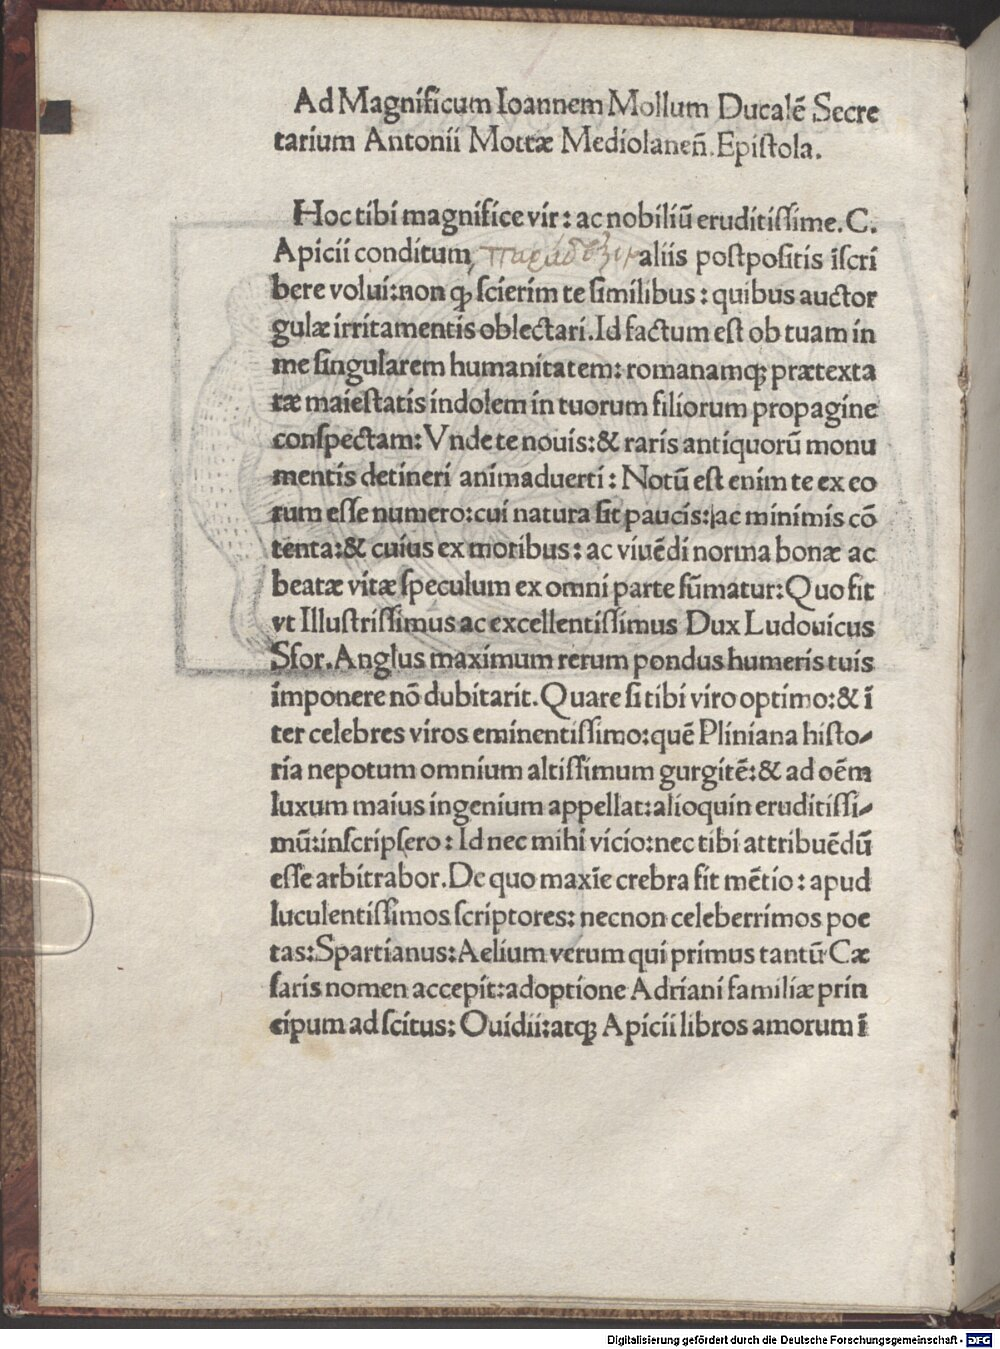 Ad Magnificum Ioannem Mollum Ducalē Secre
tarium Antonii Mottæ Mediolaneñ. Epiſtola.
Hoc tibi magnifice vir: ac nobiliū eruditiſſime. C.
Apicii conditum, παράδοξον aliis poſtpoſitis īſcri
bere volui: non ꝙ ſcierim te ſimilibus: quibus auctor
gulæ irritamentis oblectari. Id factum eſt ob tuam in
me ſingularem humanitatem: romanamqꝫ prætexta
tæ maieſtatis indolem in tuorum filiorum propagine
conſpectam: Vnde te nouis: & raris antiquorū monu
mentis detineri animaduerti: Notū eſt enim te ex eo
rum eſſe numero: cui natura ſit paucis: ac minimis cō
tenta: & cuius ex moribus: ac viuēdi norma bonæ ac
beatæ vitæ ſpeculum ex omni parte ſūmatur: Quo fit
vt Illuſtriſſimus ac excellentiſſimus Dux Ludouicus
Sfor. Anglus maximum rerum pondus humeris tuis
imponere nō dubitarit. Quare ſi tibi viro optimo: & ī
ter celebres viros eminentiſſimo: quē Pliniana hiſto-
ria nepotum omnium altiſſimum gurgitē: & ad oēm
luxum maius ingenium appellat: alioquin eruditiſſi-
mū: inſcripſero: Id nec mihi vicio: nec tibi attribuēdū
eſſe arbitrabor. De quo maxīe crebra fit mētio: apud
luculentiſſimos ſcriptores: necnon celeberrimos poe
tas: Spartianus: Aelium verum qui primus tantū Cæ
ſaris nomen accepit: adoptione Adriani familiæ prin
cipum ad ſcitus: Ouidii: atqꝫ Apicii libros amorum ī
Digitalisierung gefördert durch die Deutsche Forschungsgemeinschaft - DFG